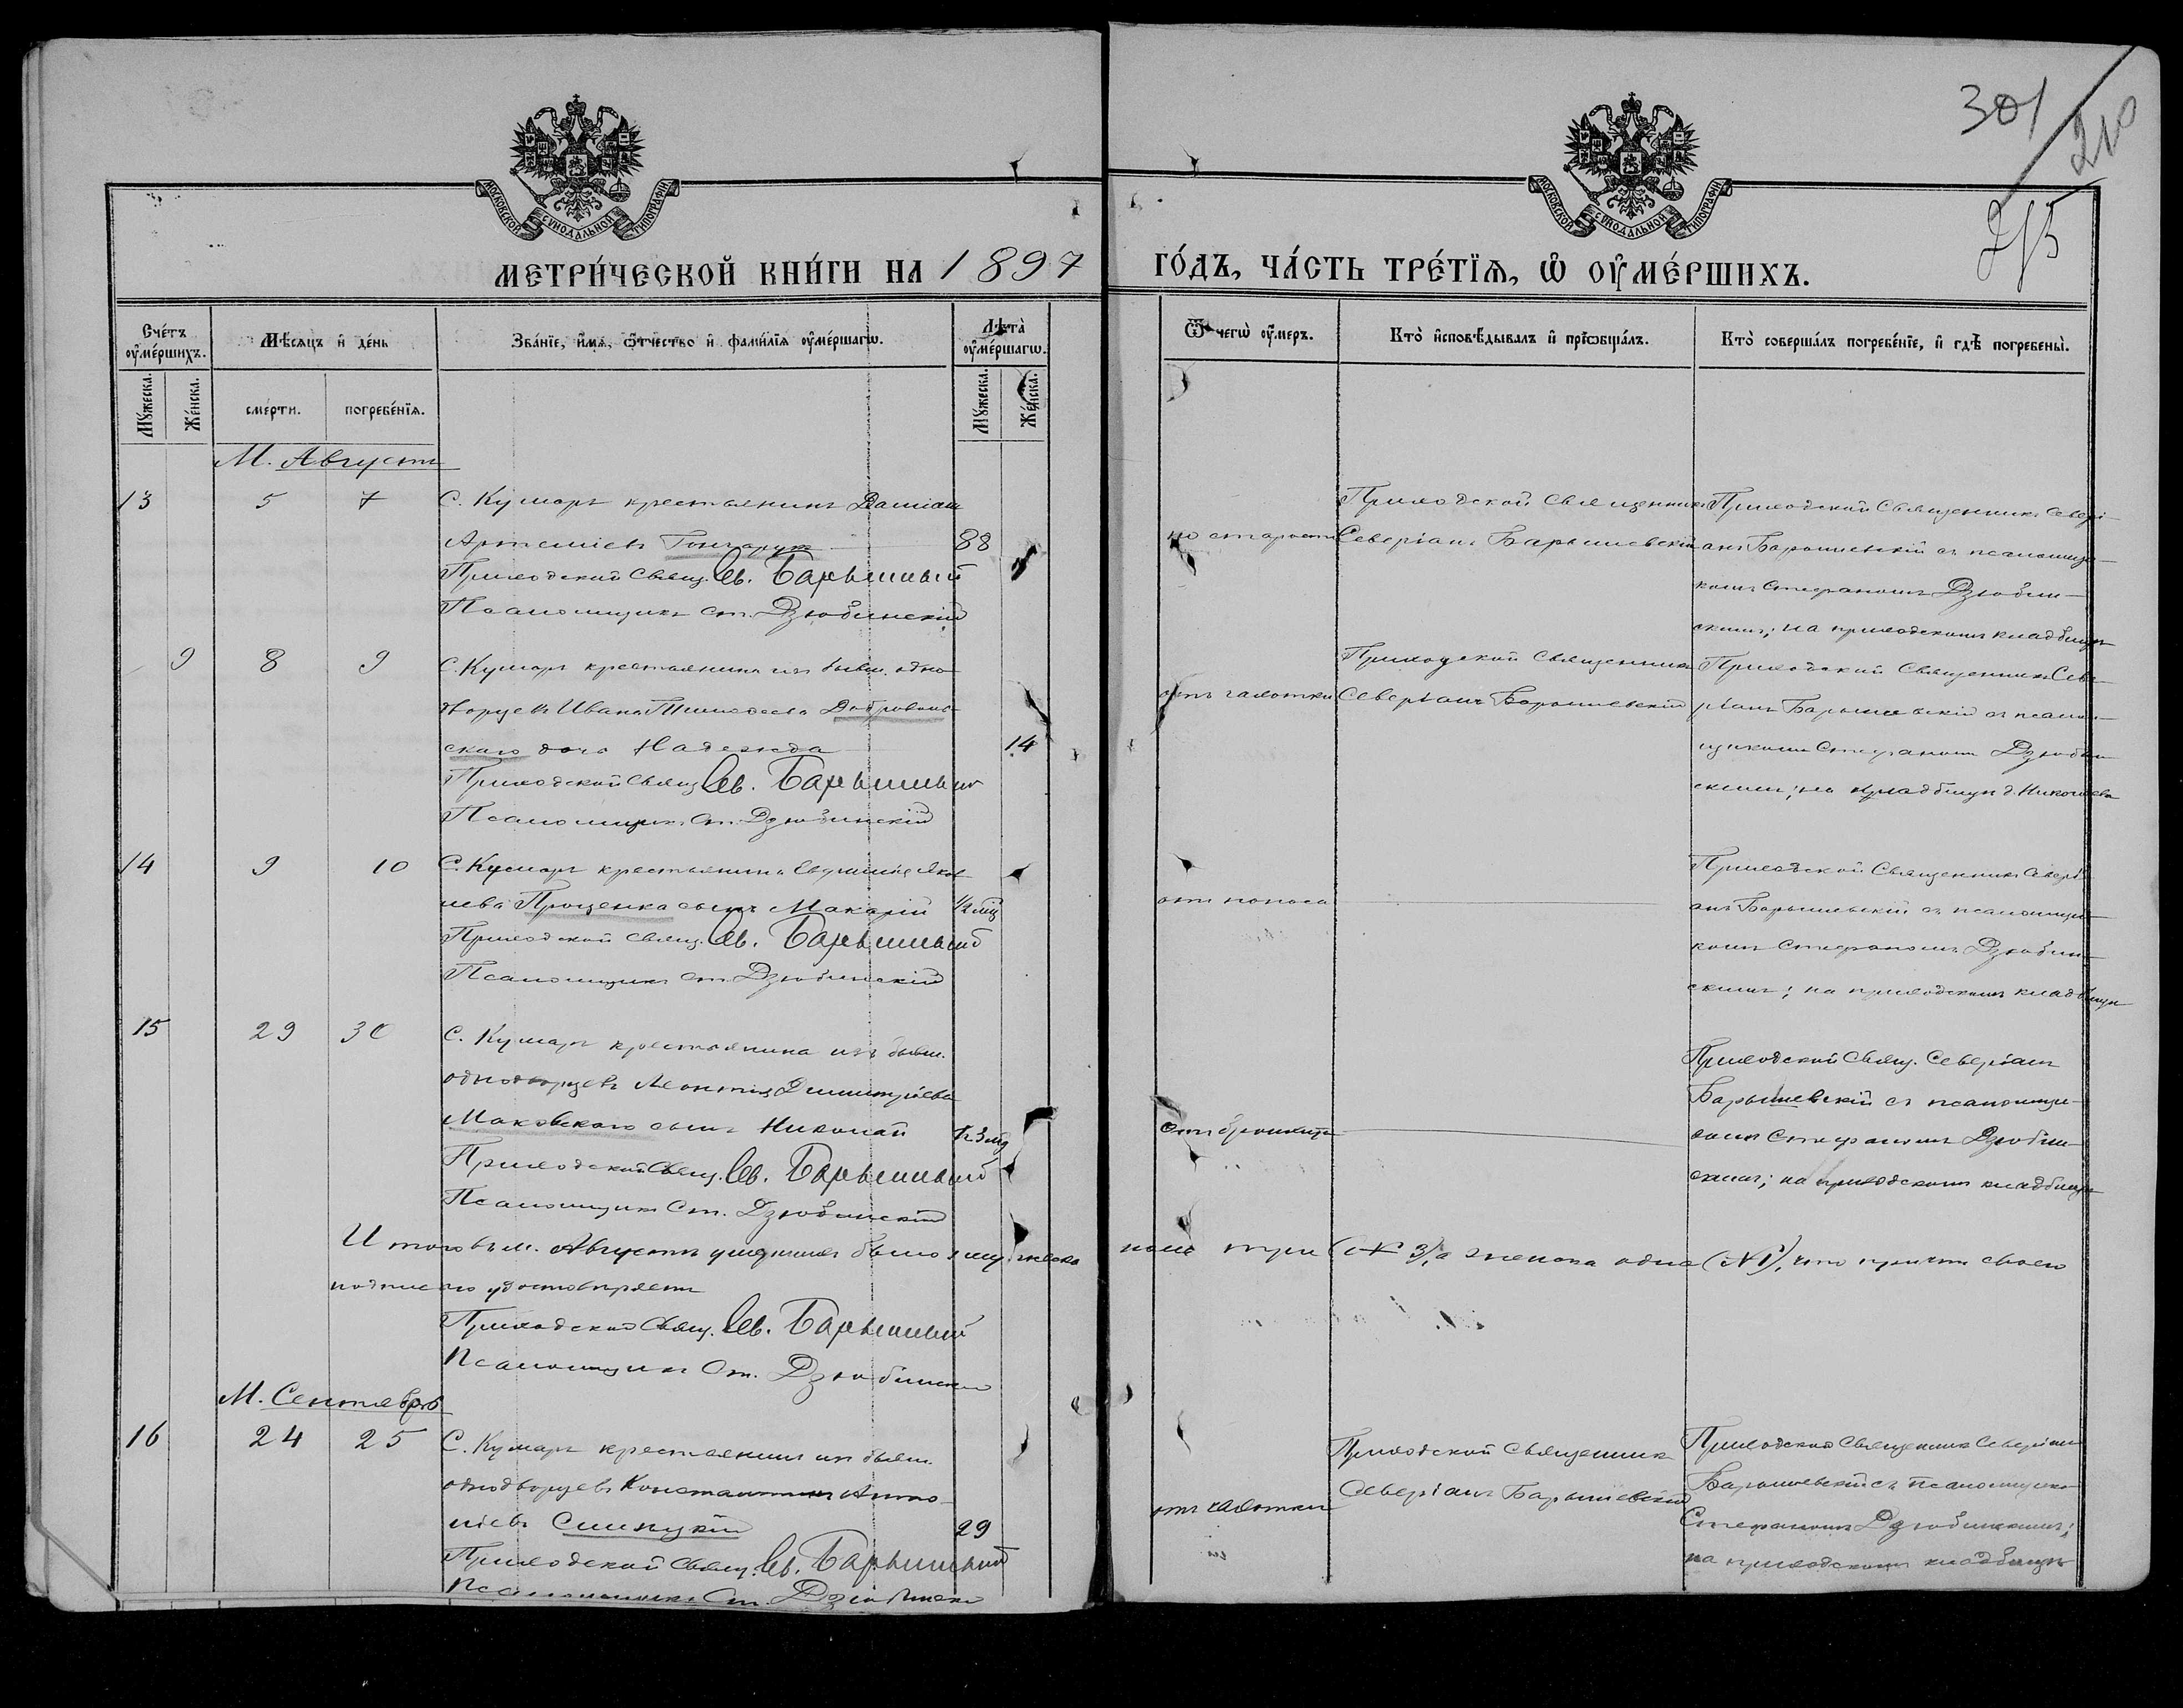 301
210
215
МОСКОВСКОЙ СѴНОДАЛЬНОЙ ТИПОГРАФІИ
МОСКОВСКОЙ СѴНОДАЛЬНОЙ ТИПОГРАФІИ
МЕТРИ́ЧЕСКОЙ КНИ́ГИ НА 1897
ГО́ДЪ, ЧА́СТЬ ТРЕ́ТЇѦ, Ѽ ОУ҆МЕ́РШИХЪ.
Сче́тъ оу҆ме́ршихъ.
Мѣ́сѧцъ и҆ де́нь
Зва́нїе, и҆́мѧ, ѻ҆́тчество и҆ фами́лїѧ оу҆ме́ршагѡ.
Лѣ́та оу҆ме́ршагѡ.
Ѿ чегѡ̀ оу҆́меръ.
Кто̀ и҆сповѣ́дывалъ и҆ прїѡбща́лъ.
Кто̀ соверша́лъ погребе́нїе, и҆ гдѣ̀ погребены̀.
Мꙋ́жеска.
Же́нска.
сме́рти.
погребе́нїя.
Мꙋ́жеска.
Же́нска.
М. Августъ
13
5
7
С. Кумаръ крестьянинъ Даміан
Артеміевъ Гончарукъ
88
Приходскій Свящ. Св. Барыш
Псаломщикъ Ст. Дзюбинскій
по старости
Приходской Священникъ
Северіанъ Барышевскій
Приходскій Священникъ Севері-
анъ Барышевскій съ псаломщи-
комъ Стефаномъ Дзюбин-
скимъ; на приходскомъ кладбищѣ
9
8
9
С. Кумаръ крестьянина изъ бывш. одно-
дворцевъ Ивана Тимофеева Доброволь-
скаго дочь Надежда
14
Приходской Свящ. Св. Барыш
Псаломщикъ Ст. Дзюбинскій
отъ чахотки
Приходской Священникъ
Северіанъ Барышевскій
Приходскій Священникъ Севе-
ріанъ Барышевскій съ псалом-
щикомъ Стефаномъ Дзюбин-
скимъ; на кладбищѣ д.
14
9
10
С. Кумаръ крестьянина Евфимія Яков-
лева Проценка сынъ Макарій
1/2 м
Приходской Свящ. Св. Барыш
Псаломщикъ Ст. Дзюбинскій
отъ поноса
Приходской Священникъ Севері-
анъ Барышевскій съ псаломщи-
комъ Стефаномъ Дзюбин-
скимъ; на приходскомъ кладбищѣ
15
29
30
С. Кумаръ крестьянина изъ бывш.
однодворцевъ Леонтія Димитріева
Маковскаго сынъ Николай
Приходской Свящ. Св. Барыш
Псаломщикъ Ст. Дзюбинскій
Отъ
Приходской Свящ. Северіанъ
Барышевскій съ псаломщи-
комъ Стефаномъ Дзюбин-
скимъ; на приходскомъ кладбищѣ
Итого въ м. Августѣ умершихъ было: мужеска пола три (№ 3), а женска одна (№ 1), что причтъ своею
подписью удостовѣряетъ
Приходской Свящ. Св. Барыш
Псаломщикъ Ст. Дзюбинскій
М. Сентябрь
16
24
25
С. Кумаръ крестьянинъ изъ бывш.
однодворцевъ Константинъ Анто-
ніевъ
29
Приходской Свящ. Св. Барыш
Псаломщикъ Ст. Дзюбинскій
отъ чахотки
Приходской Священникъ
Северіанъ Барышевскій
Приходской Священникъ Северіанъ
Барышевскій съ Псаломщикомъ
Стефаномъ Дзюбинскимъ;
на приходскомъ кладбищѣ